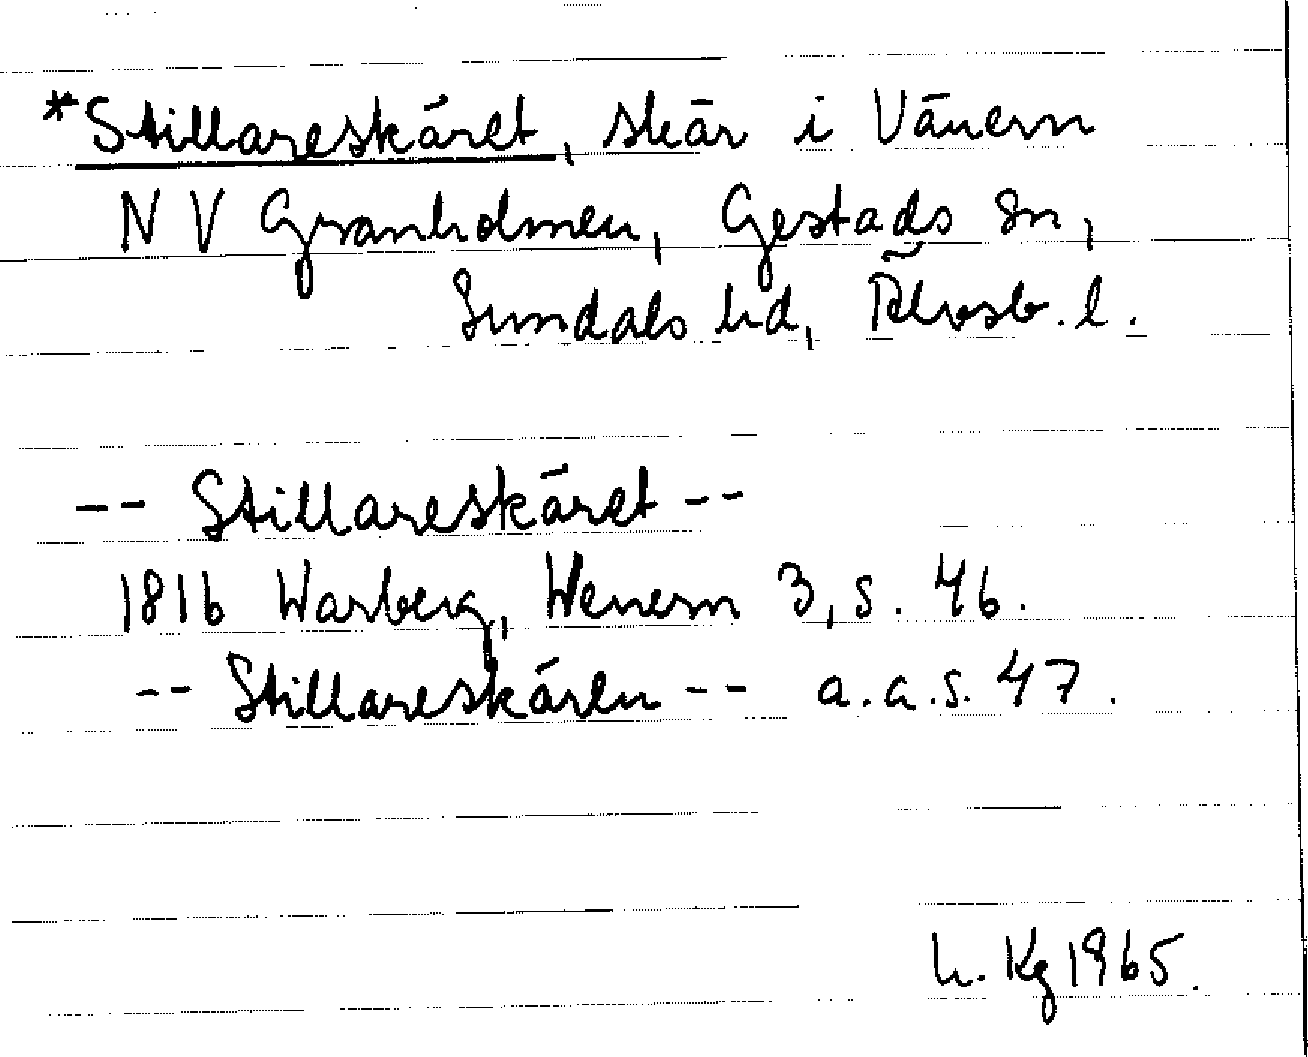 *Stillareskäret, skär i Vänern
N V Granholmen, Gestads sn,
Sundals hd, Älvsb. l.
-- Stillareskäret --
1816 Warberg, Wenern 3, s. 46.
-- Stillareskären -- a.a.s. 47.
h. Kg 1965.